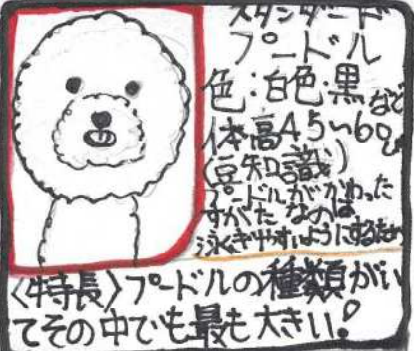 スタンダード
プードル
色:白色・黒など
体高45〜60㎝
(豆知識)
プードルがかわった
すがたなのは
泳ぎやすいようにするため
〈特長〉プードルの種類がい
てその中でも最も大きい!